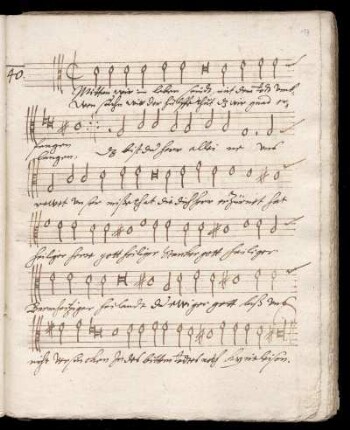 40.
Mitten wir im leben seindt, mit dem todt umb
Wen suchen wir der hülffe thut dz wir gnad er,
fangen
langen, dz bist du herr allei ne uns
rewet unser missethat die dich herr erzürnet hat
heiliger herre gott heiliger starcker gott heiliger
Barmhertziger heilandt du ewiger gott laß uns
nicht versincken in des bittern todes noth Kyrieleison.